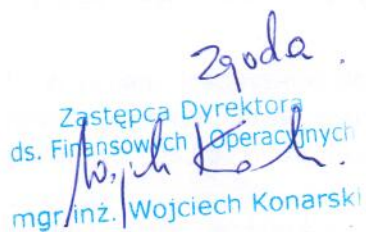 Zgoda.
Zastępca Dyrektora
ds. Finansowych i Operacyjnych
mgr inż. Wojciech Konarski